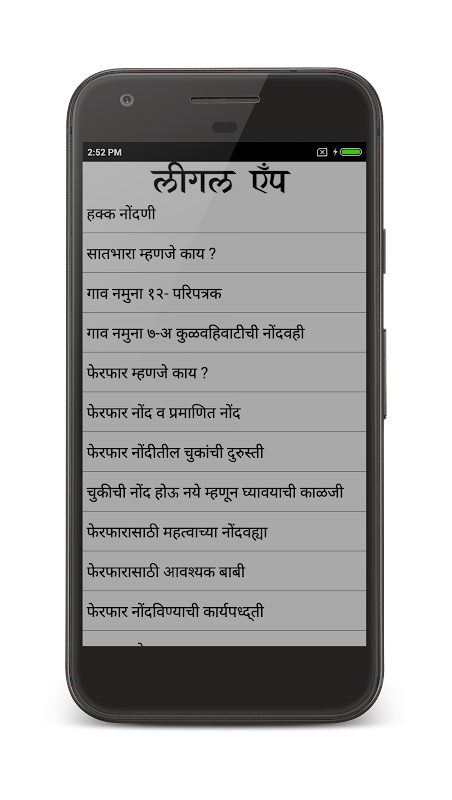 2:52 PM
लीगल ऍंप
हक्क नोंदणी
सातभारा म्हणजे काय ?
गाव नमुना १२- परिपत्रक
गाव नमुना ७-अ कुळवहिवाटीची नोंदवही
फेरफार म्हणजे काय ?
फेरफार नोंद व प्रमाणित नोंद
फेरफार नोंदीतील चुकांची दुरुस्ती
चुकीची नोंद होऊ नये म्हणून घ्यावयाची काळजी
फेरफारासाठी महत्वाच्या नोंदवह्या
फेरफारासाठी आवश्यक बाबी
फेरफार नोंदविण्याची कार्यपध्द्ती